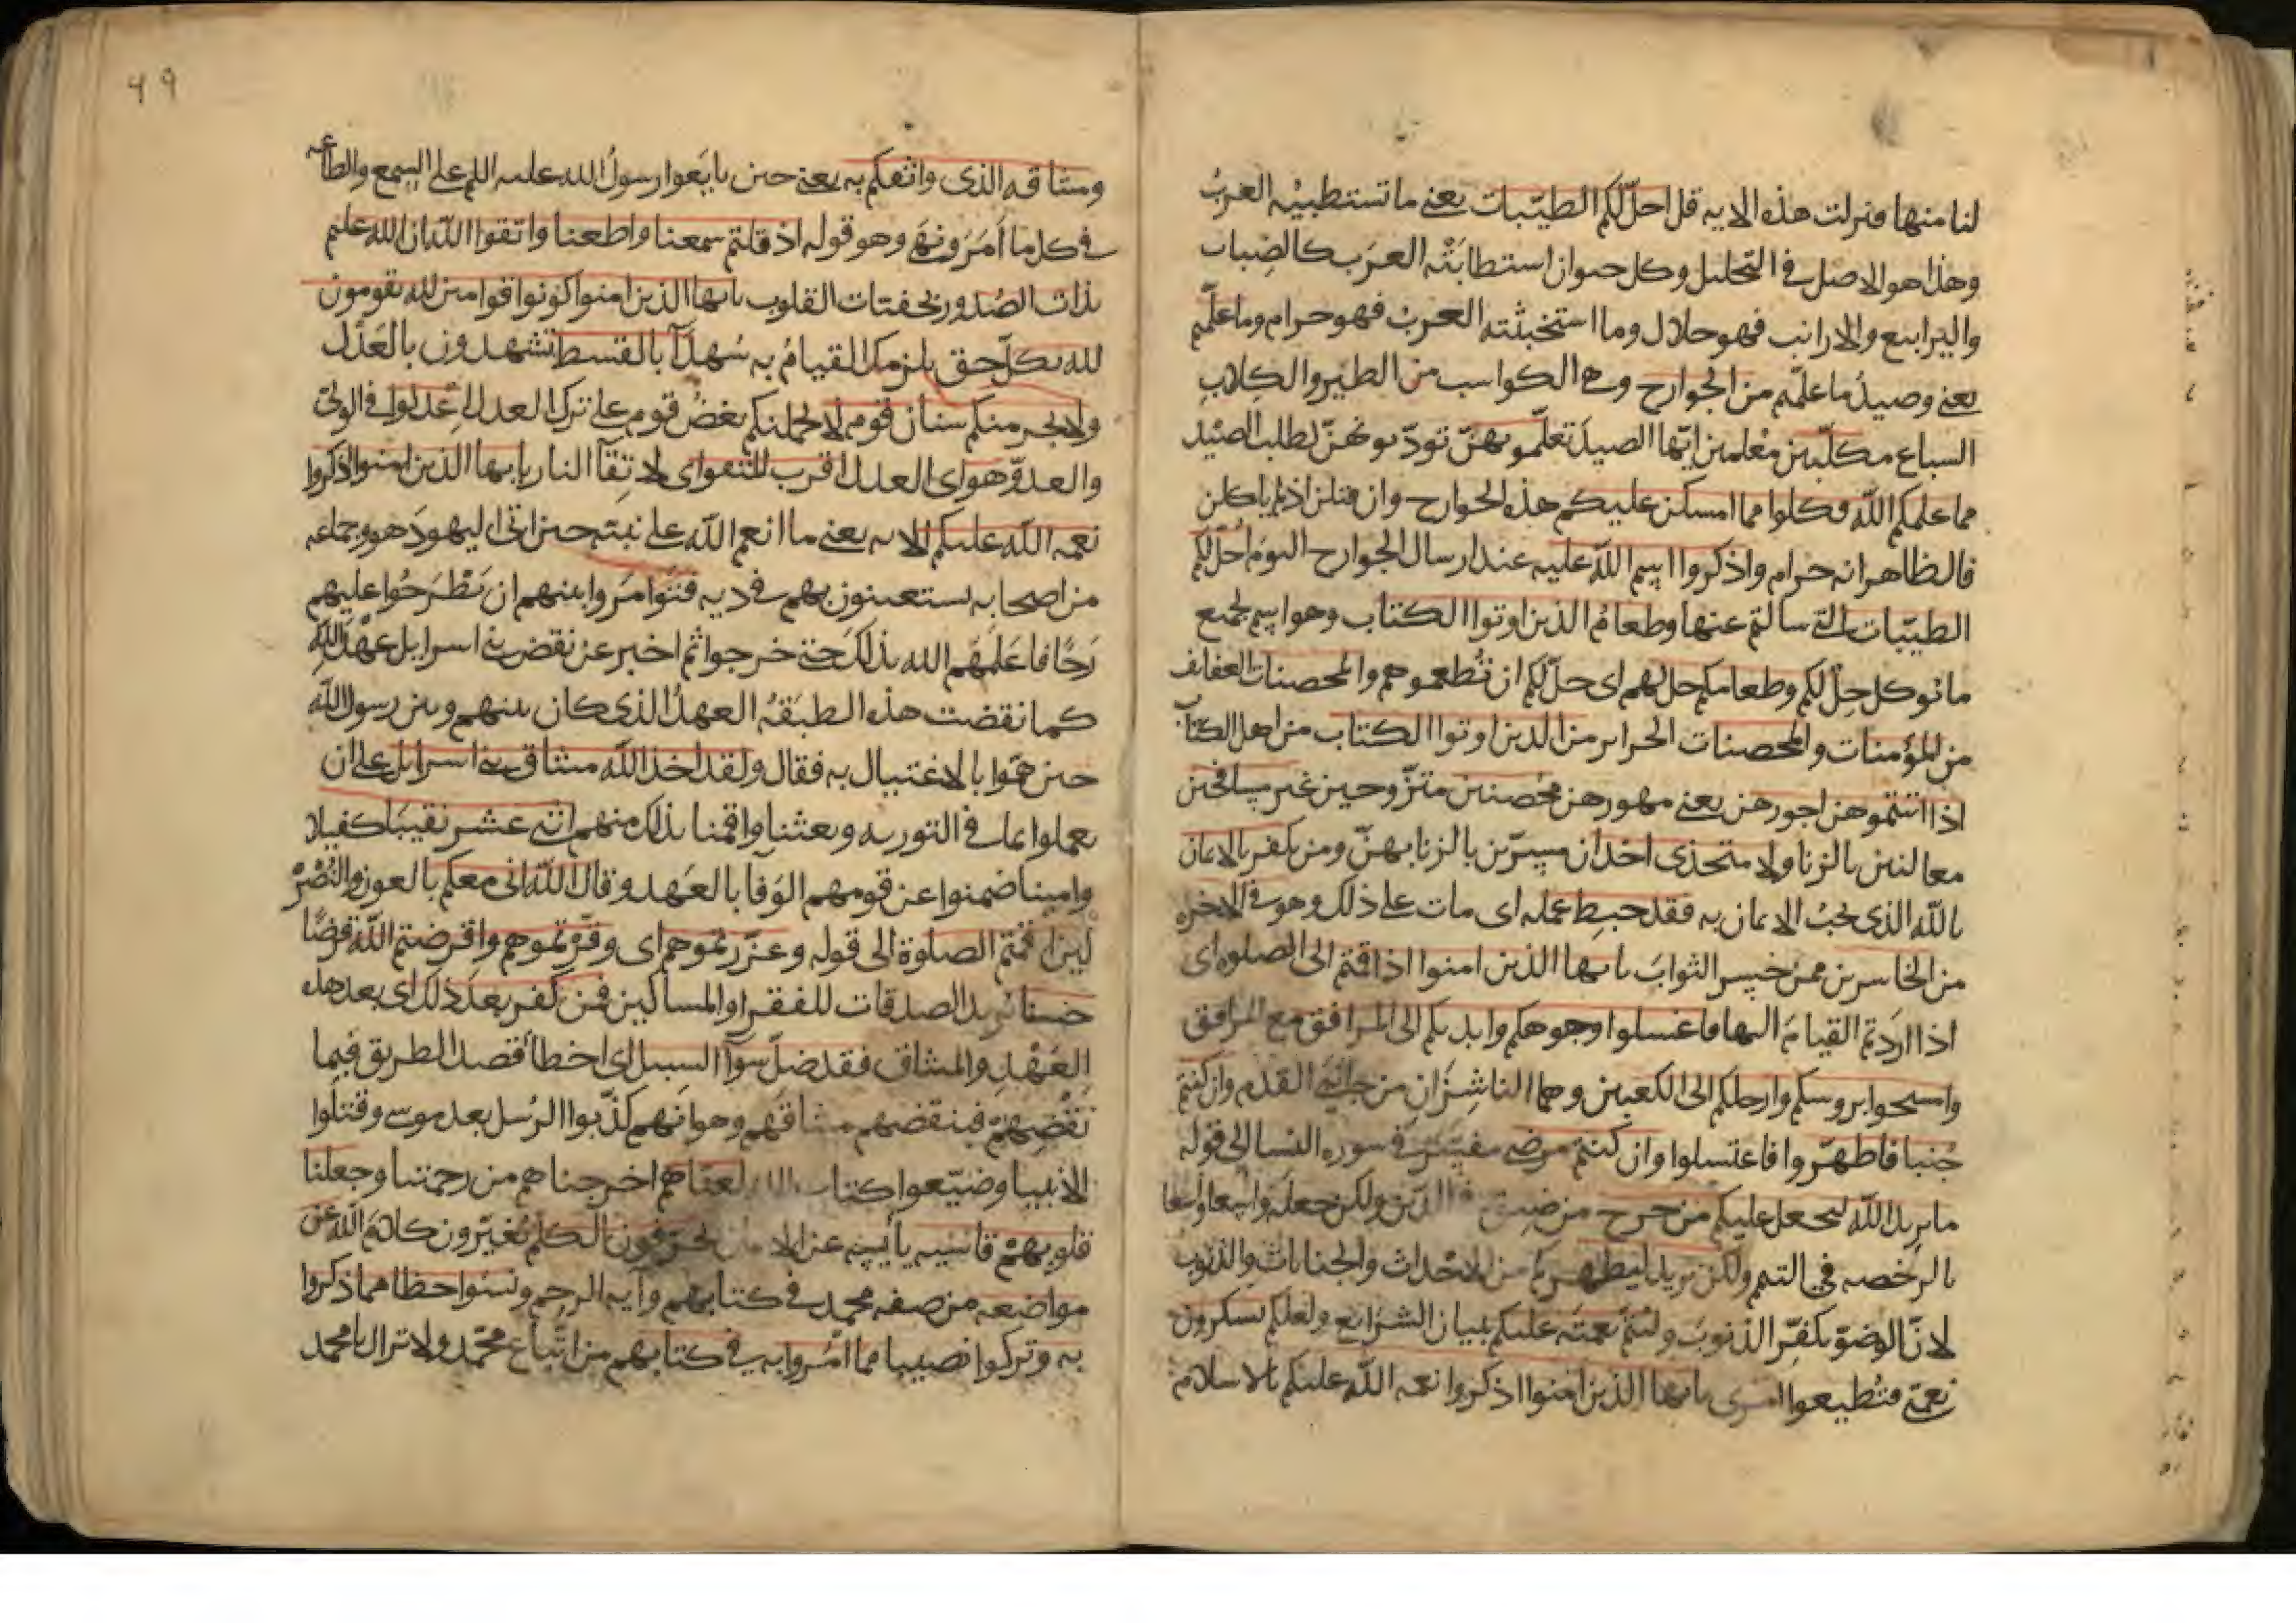 لنا منها فنزلت هذه الايه قل احل لكم الطيبات يعنى ما تستطيبه العرب
وهذا هو الاصل فى التحليل وكل حيوان استطابته العرب كالضباب
واليرابيع والارانب فهو حلال وما استخبثته العرب فهو حرام وما علمتم
يعنى وصيد ما علمتم من الجوارح وهى الكواسب من الطير والكلاب
السباع مكلبين معلمين اياها الصيد تعلمونهن تودبونهن لطلب الصيد
مما علمكم الله فكلوا مما امسكن عليكم هذه الجوارح وان قتلن اذا لم ياكلن
فالظاهر انه حرام واذكروا اسم الله عليه عند ارسال الجوارح اليوم احل لكم
الطيبات التى سالتم عنها وطعام الذين اوتوا الكتاب وهو اسم لجميع
ما يوكل حل لكم وطعامكم حل لهم اى حل لكم ان تطعموهم والمحصنات العفايف
من المؤمنات والمحصنات الحراير من الذين اوتوا الكتاب من اهل الكتاب
اذا اتيتموهن اجورهن يعنى مهورهن محصنين متزوجين غير مسافحين
معالنين بالزنا ولا متخذى اخدان مسرين بالزنا بهن ومن يكفر بالايمان
بالله الذى يجب الايمان به فقد حبط عمله اى مات على ذلك وهو فى الاخرة
من الخاسرين ممن خسر الثواب يايها الذين امنوا اذا قمتم الى الصلوه اى
اذا اردتم القيام اليها فاغسلوا وجوهكم وايديكم الى المرافق مع المرافق
وامسحوا بروسكم وارجلكم الى الكعبين وهما الناشزان من جانبى القدم وان كنتم
جنبا فاطهروا فاغتسلوا وان كنتم مرضى مفسر فى سوره النسا الى قوله
ما يريد الله ليجعل عليكم من حرج من ضيق فى الدين ولكن جعله واسعا
بالرخصه فى التيمم ولكن يريد ليطهركم من الاحداث والجنابات والذنوب
لان الوضو يكفر الذنوب وليتم نعمته عليكم ببيان الشرايع ولعلكم تشكرون
نعمتى فتطيعوا امرى يايها الذين امنوا اذكروا نعمه الله عليكم بالاسلام
٤٩
وميثاقه الذى واثقكم به يعنى حين بايعوا رسول الله عليه السلم على السمع والطاعه
فى كل ما امر ونهى وهو قوله اذ قلتم سمعنا واطعنا واتقوا الله ان الله عليم
بذات الصدور بخفيات القلوب يايها الذين امنوا كونوا قوامين لله تقومون
لله بكل حق يلزمكم القيام به شهدآ بالقسط تشهدون بالعدل
ولا يجرمنكم شنان قوم لا يحملنكم بغض قوم على ترك العدل اعدلوا فى الولى
والعدو هو اى العدل اقرب للتقوى اى لاتقآ النار يايها الذين امنوا اذكروا
نعمه الله عليكم الايه يعنى ما انعم الله على نبيه حين اتى اليهود هو وجماعه
من اصحابه يستعينون بهم فى ديه فتوامروا بينهم ان يطرحوا عليهم
رحا فاعلمهم الله بذلك حتى خرجوا ثم اخبر عن نقض بنى اسرايل عهد الله
كما نقضت هذه الطبقه العهد الذى كان بينهم وبين رسول الله
حين هموا بالاغتيال به فقال ولقد اخذ الله ميثاق بنى اسرايل على ان
يعملوا بما فى التوريه وبعثنا واقمنا بذلك منهم اثنى عشر نقيبا كفيلا
وامينا ضمنوا عن قومهم الوفا بالعهد وقال الله انى معكم بالعون والنصر
لين اقمتم الصلوة الى قوله وعزرتموهم اى وقرتموهم واقرضتم الله قرضا
حسنا يريد الصدقات للفقرا والمساكين فمن كفر بعد ذلك اى بعد هذا
العهد والميثاق فقد ضل سوآ السبيل اى اخطا قصد الطريق فبما
نقضهم فبنقضهم ميثاقهم وهو انهم كذبوا الرسل بعد موسى وقتلوا
الانبيا وضيعوا كتاب الله لعناهم اخرجناهم من رحمتنا وجعلنا
قلوبهم قاسيه يابسه عن الايمان يحرفون الكلم يغيرون كلام الله عن
مواضعه من صفه محمد فى كتابهم وآيه الرجم ونسوا حظا مما ذكروا
به وتركوا نصيبا مما امروا به فى كتابهم من اتباع محمد ولا تزال يا محمد